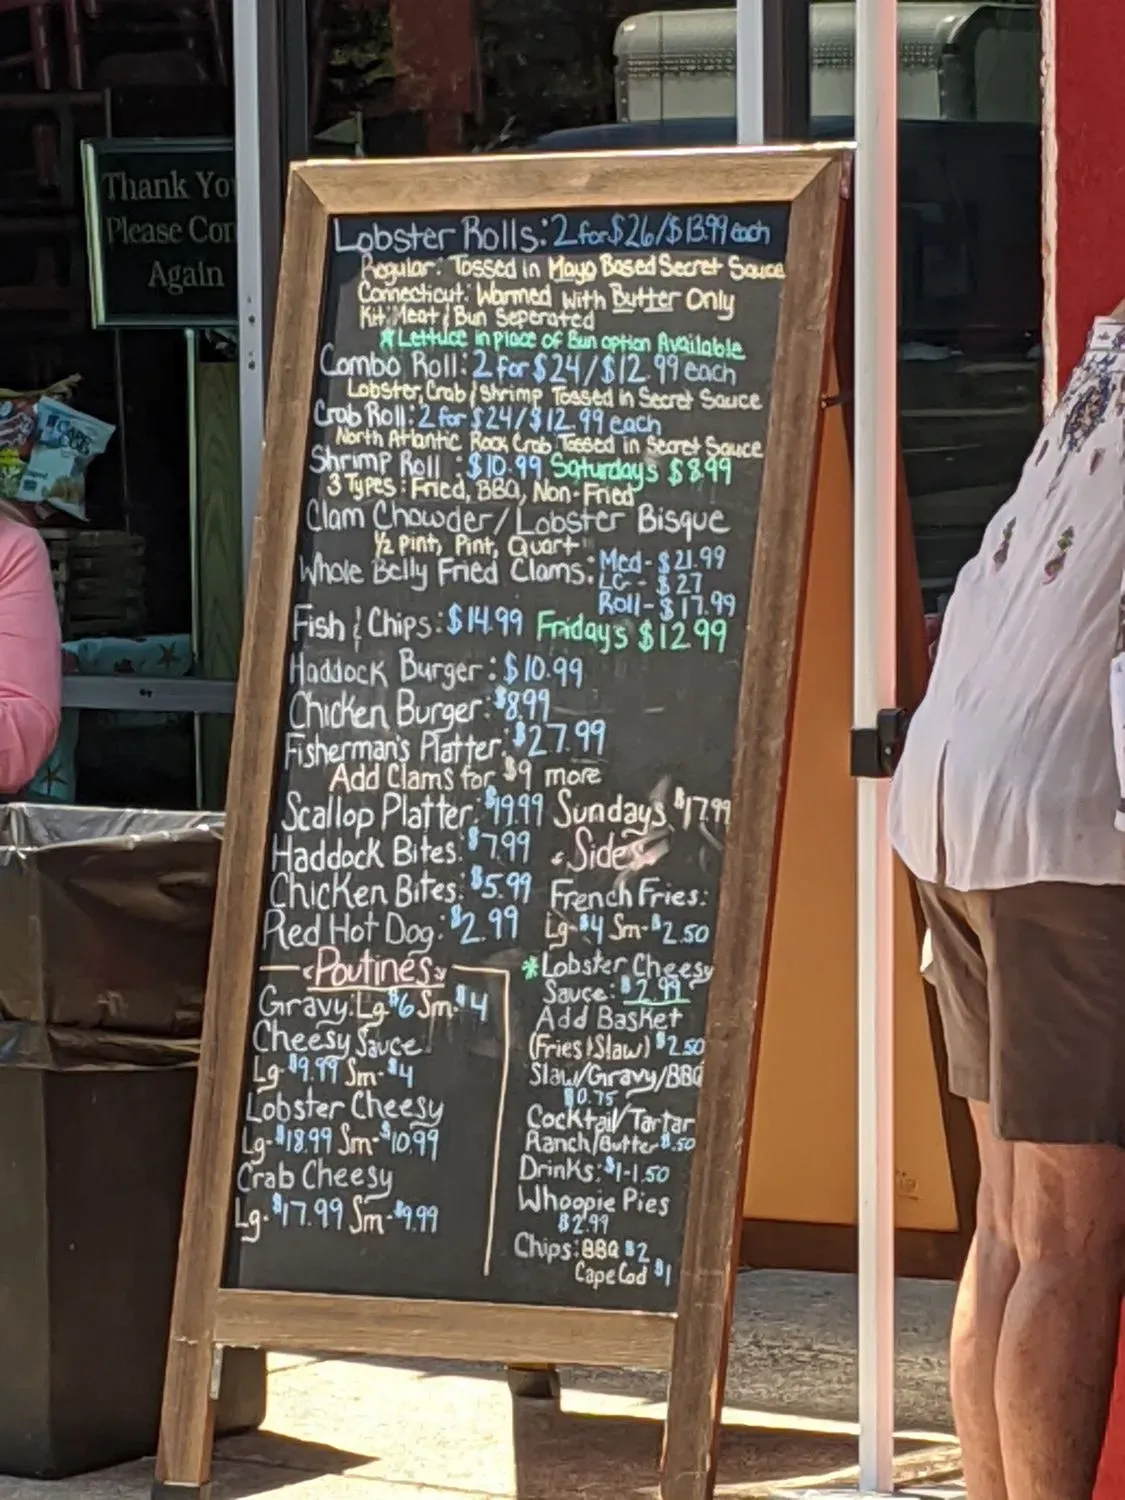 Thank You
Please Com
Again
Lobster Rolls: 2 for $26/$13.99 each
Regular: Tossed in Mayo Based Secret Sauce
Connecticut: Warmed with Butter Only
Kit: Meat/Bun Seperated
*Lettuce in place of Bun option Available
Combo Roll: 2 for $24/$12.99 each
Lobster, Crab/Shrimp Tossed in Secret Sauce
Crab Roll: 2 for $24/$12.99 each
North Atlantic Rock Crab Tossed in Secret Sauce
Shrimp Roll: $10.99 Saturdays $8.99
3 Types: Fried, BBQ, Non-Fried
Clam Chowder/Lobster Bisque
½ pint, Pint, Quart
Whole Belly Fried Clams: Med- $21.99
LG- $27
Roll- $17.99
Fish & Chips: $14.99 Fridays $12.99
Haddock Burger: $10.99
Chicken Burger: $8.99
Fisherman's Platter: $27.99
Add Clams for $9 more
Scallop Platter: $19.99 Sundays $17.99
Haddock Bites: $7.99
Chicken Bites: $5.99
Red Hot Dog: $2.99
Poutines
Gravy: Lg-$6 Sm-$4
Cheesy Sauce
Lg-$9.99 Sm-$4
Lobster Cheesy
Lg-$18.99 Sm-$10.99
Crab Cheesy
Lg-$17.99 Sm-$9.99
Sides
French Fries:
Lg-$4 Sm-$2.50
*Lobster Cheesy
Sauce: $2.99
Add Basket
(Fries & Slaw) $2.50
Slaw/Gravy/BBQ
$0.75
Cocktail/Tartar
Ranch/Butter $.50
Drinks: $1-1.50
Whoopie Pies
$2.99
Chips: BBQ $2
Cape Cod $1